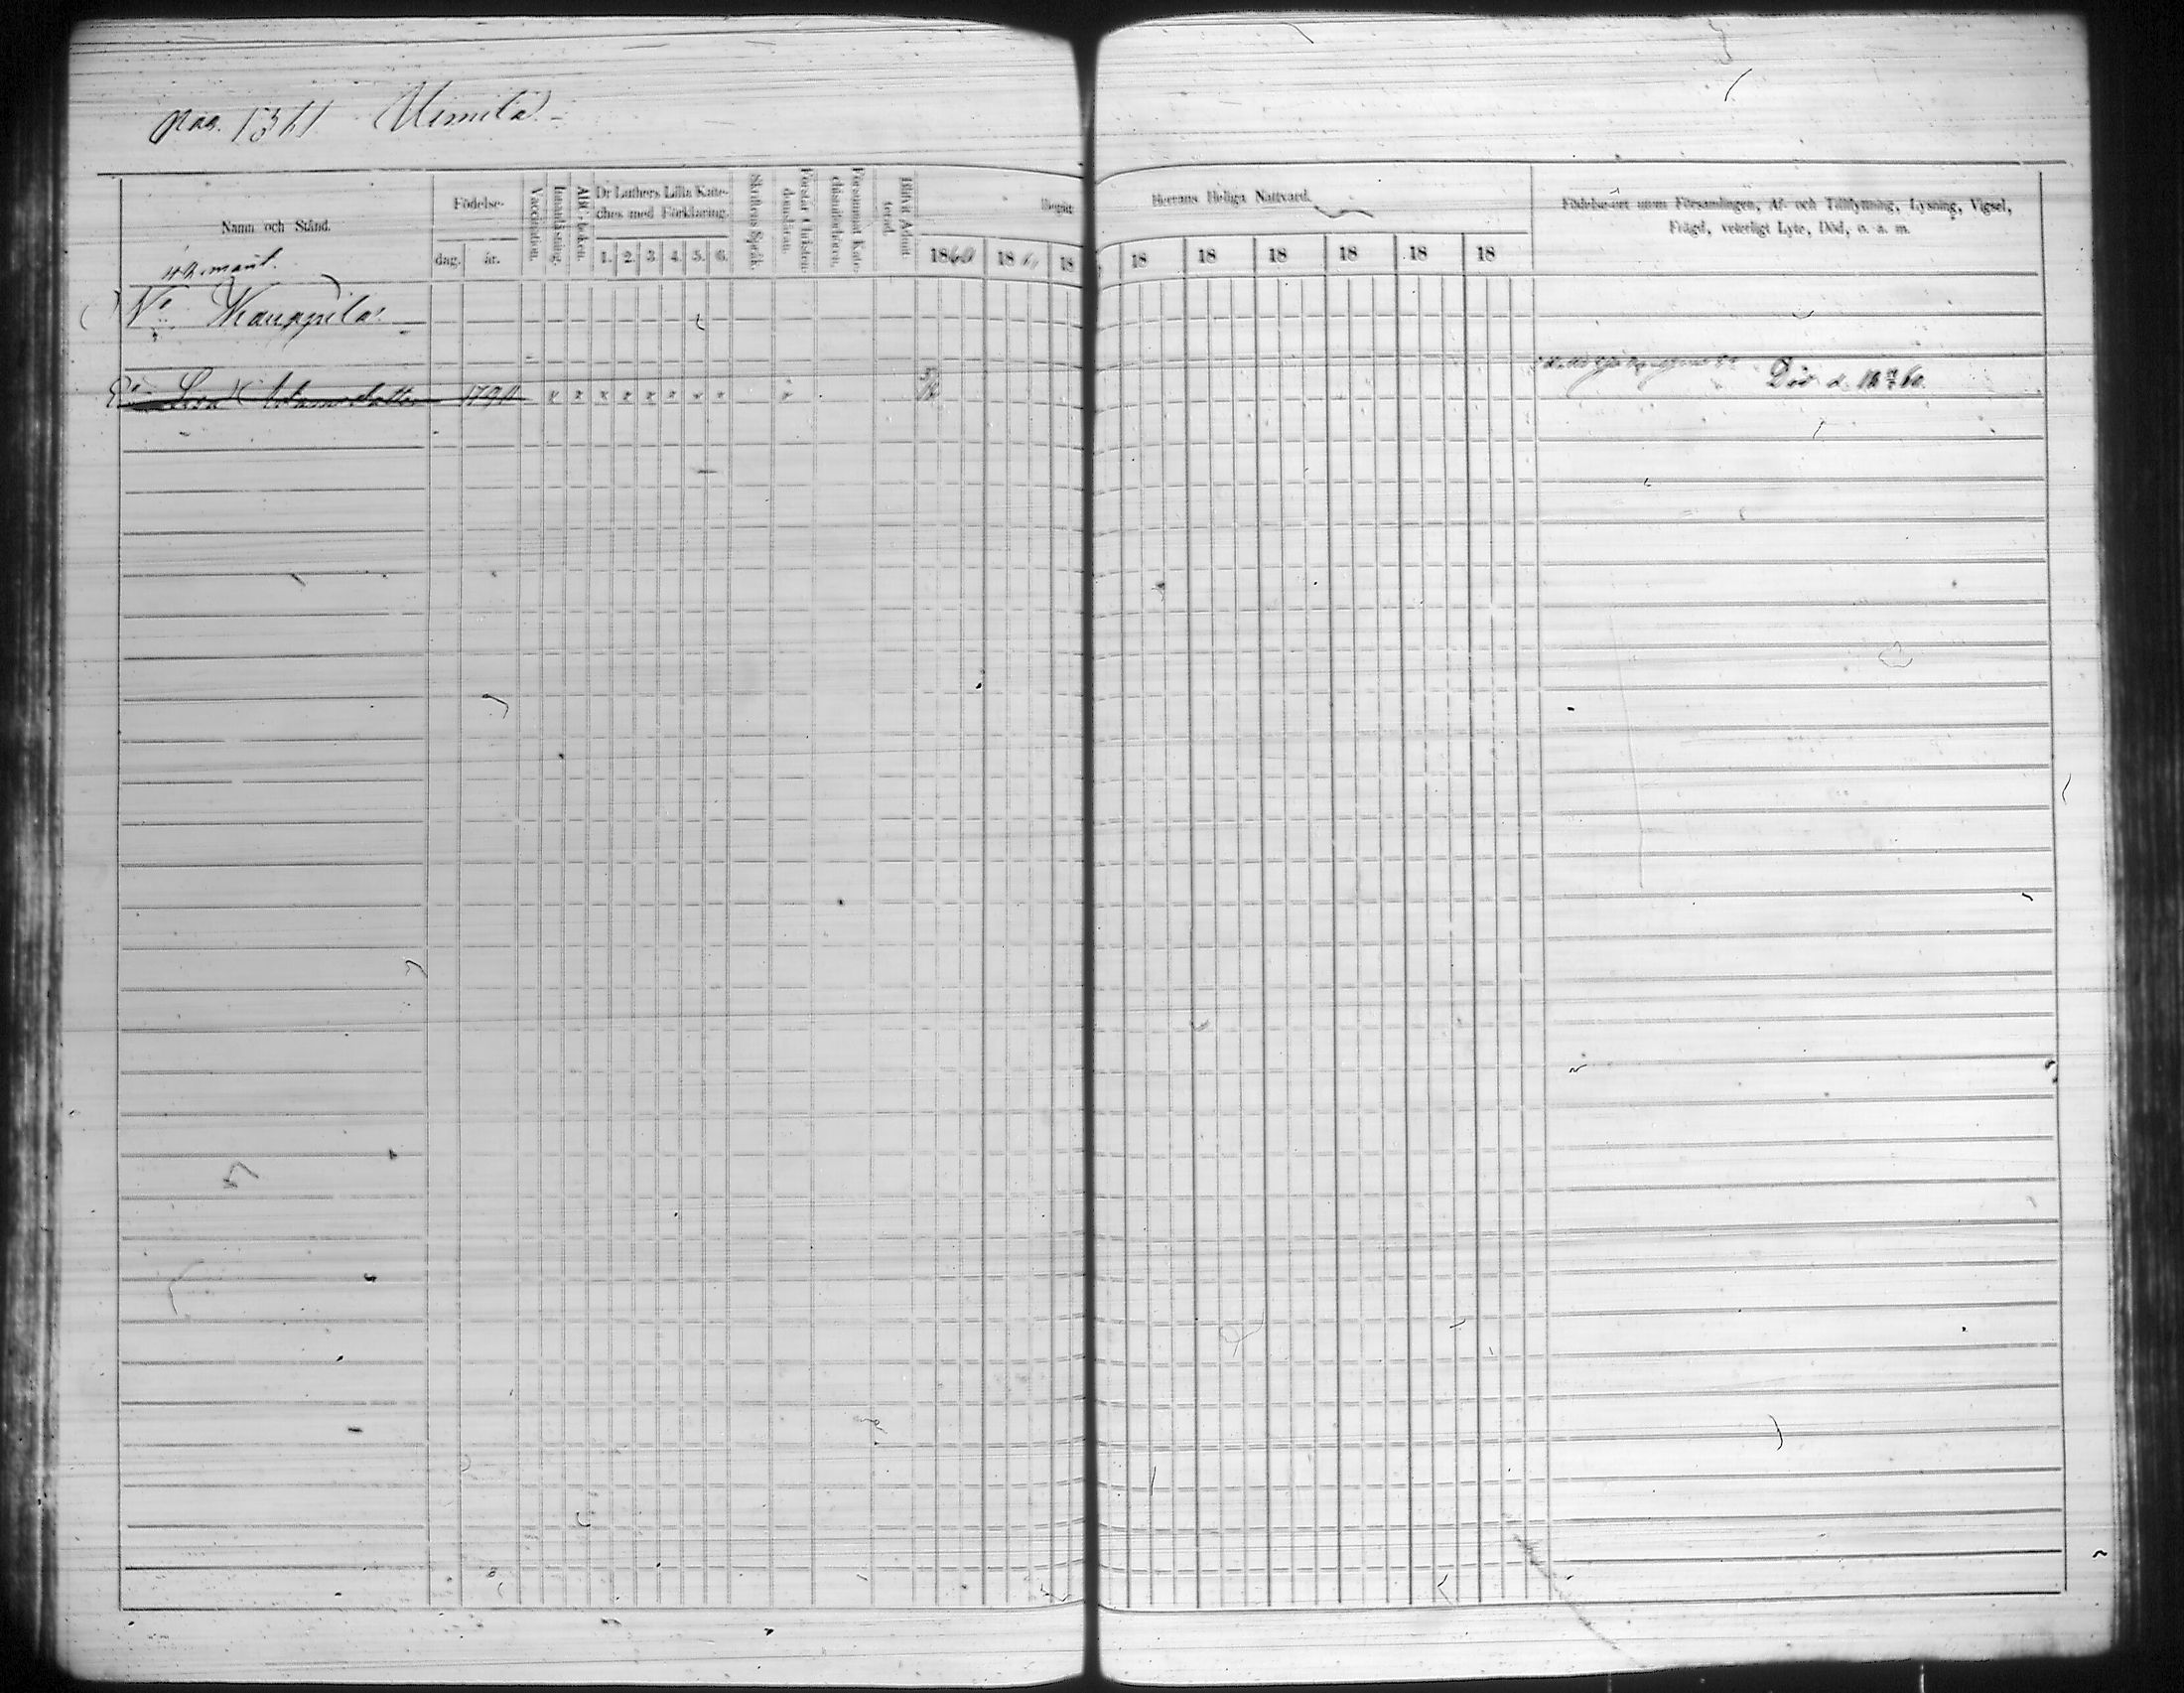 pag. 1311 Uimila.
Namn och Stånd.
Födelse-
dag.
år.
Vaccination.
Innanläsning.
ABC-boken.
Dr Luthers Lilla Kate-
ches med Förklaring.
1. 2. 3. 4. 5. 6.
Skriftens Språk.
Förstår Christen-
domsläran.
Försummat Kate-
chismiförhören.
Blifvit Admit-
terad.
Begåg
Herrans Heliga Nattvard.
1860 186 18 18 18 18 18 18 18
Födelse-ort utom Församlingen, Af- och Tillflyttning, Lysning, Vigsel,
Frägd, veterligt Lyte, Död, o. a. m.
mant.
No Kauppila.
Lisa Adamsdotter 1790 x x x x x x x x x Död d. 60.